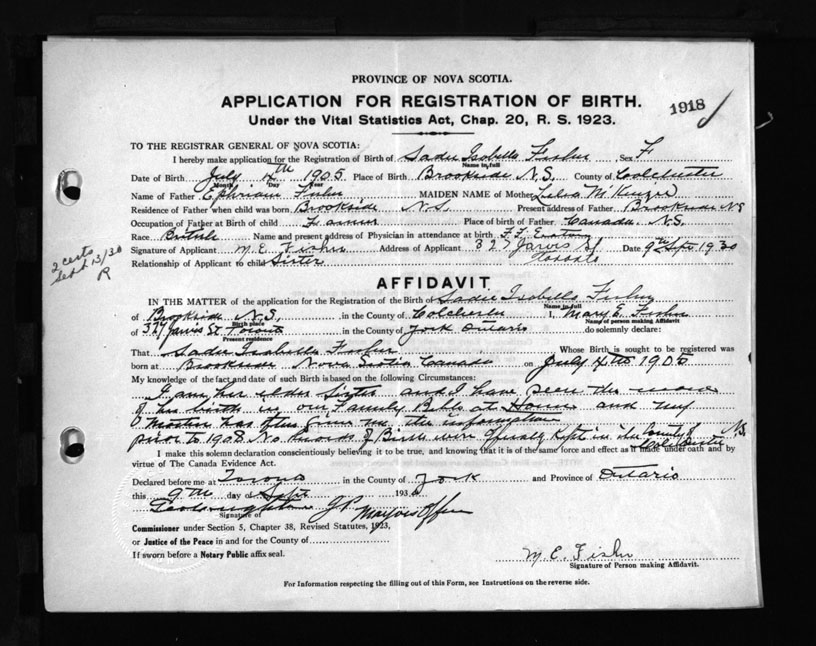 PROVINCE OF NOVA SCOTIA.
APPLICATION FOR REGISTRATION OF BIRTH.
1918
Under the Vital Statistics Act, Chap. 20, R. S. 1923.
TO THE REGISTRAR GENERAL OF NOVA SCOTIA:
I hereby make application for the Registration of Birth of Sadie Isabella Fisher Sex F
Name in full
Date of Birth July 4th 1905 Place of Birth Brookside N.S. County of Colchester
Month Day Year
Name of Father Ephriam Fisher MAIDEN NAME of Mother Lelia McKenzie
Residence of Father when child was born Brookside N.S. Present address of Father Brookside N.S
Occupation of Father at Birth of child Farmer Place of birth of Father Canada N.S.
Race British Name and present address of Physician in attendance at birth F.F. Eaton
Signature of Applicant M E Fisher Address of Applicant 327 Jarvis St Toronto Date 9th Sept 1930
Relationship of Applicant to child Sister
2 certs
Sept 13/30
R
AFFIDAVIT
IN THE MATTER of the application for the Registration of the Birth of Sadie Isabella Fisher
Name in full
of Brookside N.S. in the County of Colchester I, Mary E. Fisher
Birth place Name of person making Affidavit
of 327 Jarvis St Toronto in the County of York Ontario do solemnly declare:
Present residence
That Sadie Isabella Fisher Whose Birth is sought to be registered was
born at Brookside Nova Scotia Canada on July 4th 1905
My knowledge of the fact and date of such Birth is based on the following Circumstances:
I am her elder Sister and I have seen the
of his birth in our Family Bible at Home and my
Mother has often given me the information
prior to 1908 No records of Births were kept in the County of Colchester N.S.
I make this solemn declaration conscientiously believing it to be true, and knowing that it is of the same force and effect as if made under oath and by
virtue of The Canada Evidence Act.
Declared before me at Toronto in the County of York and Province of Ontario
this 9th day of Sept 1930
Signature of
Commissioner under Section 5, Chapter 38, Revised Statutes, 1923,
or Justice of the Peace in and for the County of
If sworn before a Notary Public affix seal.
M. E. Fisher
Signature of Person making Affidavit.
For Information respecting the filling out of this Form, see Instructions on the reverse side.